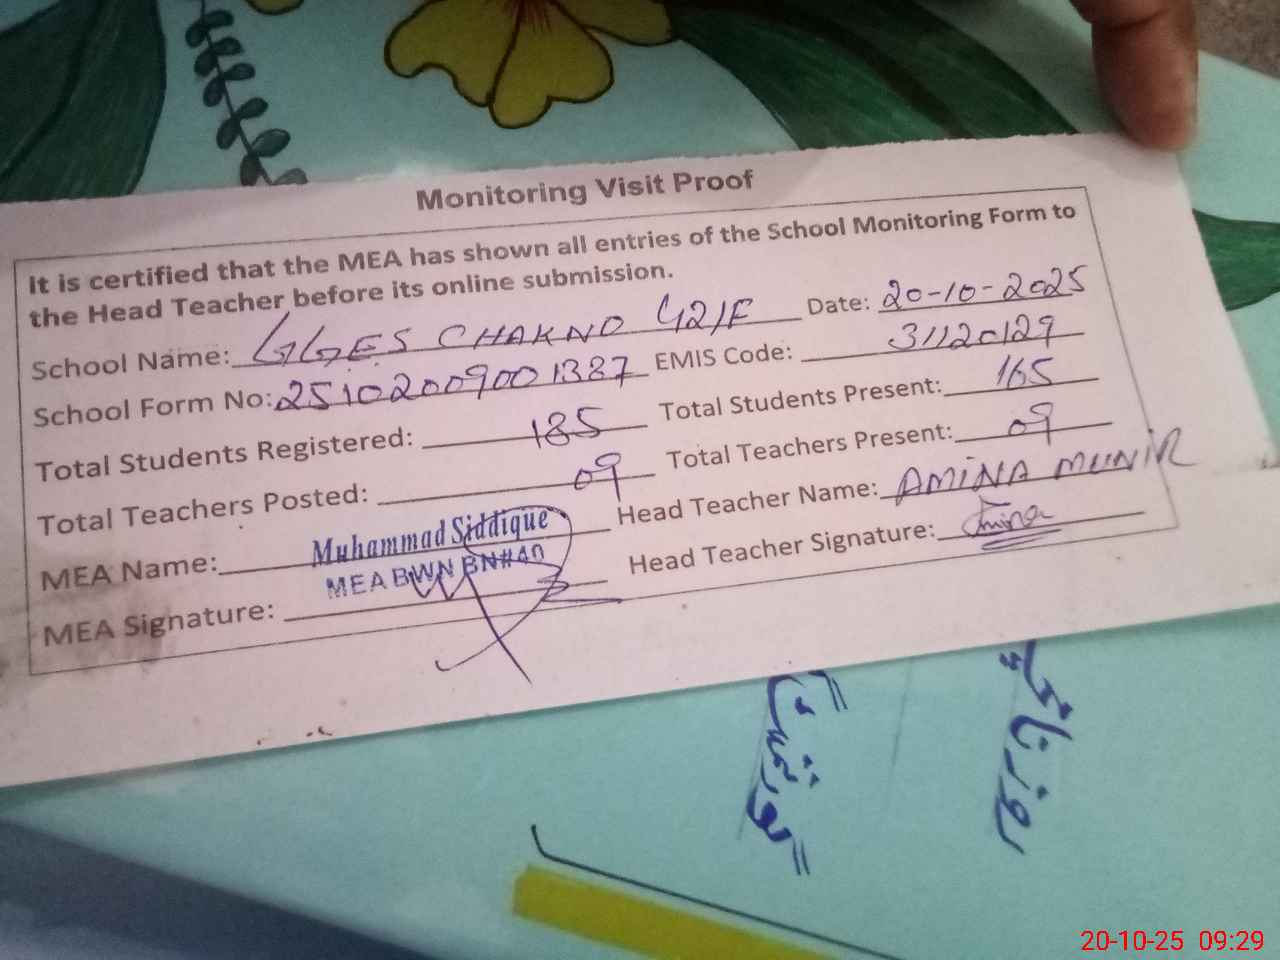 Monitoring Visit Proof
It is certified that the MEA has shown all entries of the School Monitoring Form to
the Head Teacher before its online submission.
School Name: GGES CHAKNO 42/F Date: 20-10-2025
School Form No: 25102009001387 EMIS Code: 31120129
Total Students Registered: 185 Total Students Present: 165
Total Teachers Posted: 09 Total Teachers Present: 09
MEA Name: Muhammad Siddique Head Teacher Name: AMINA MUNIR
MEA BWN BN#40
MEA Signature: Head Teacher Signature: Amina
گورنمنٹ
20-10-25 09:29